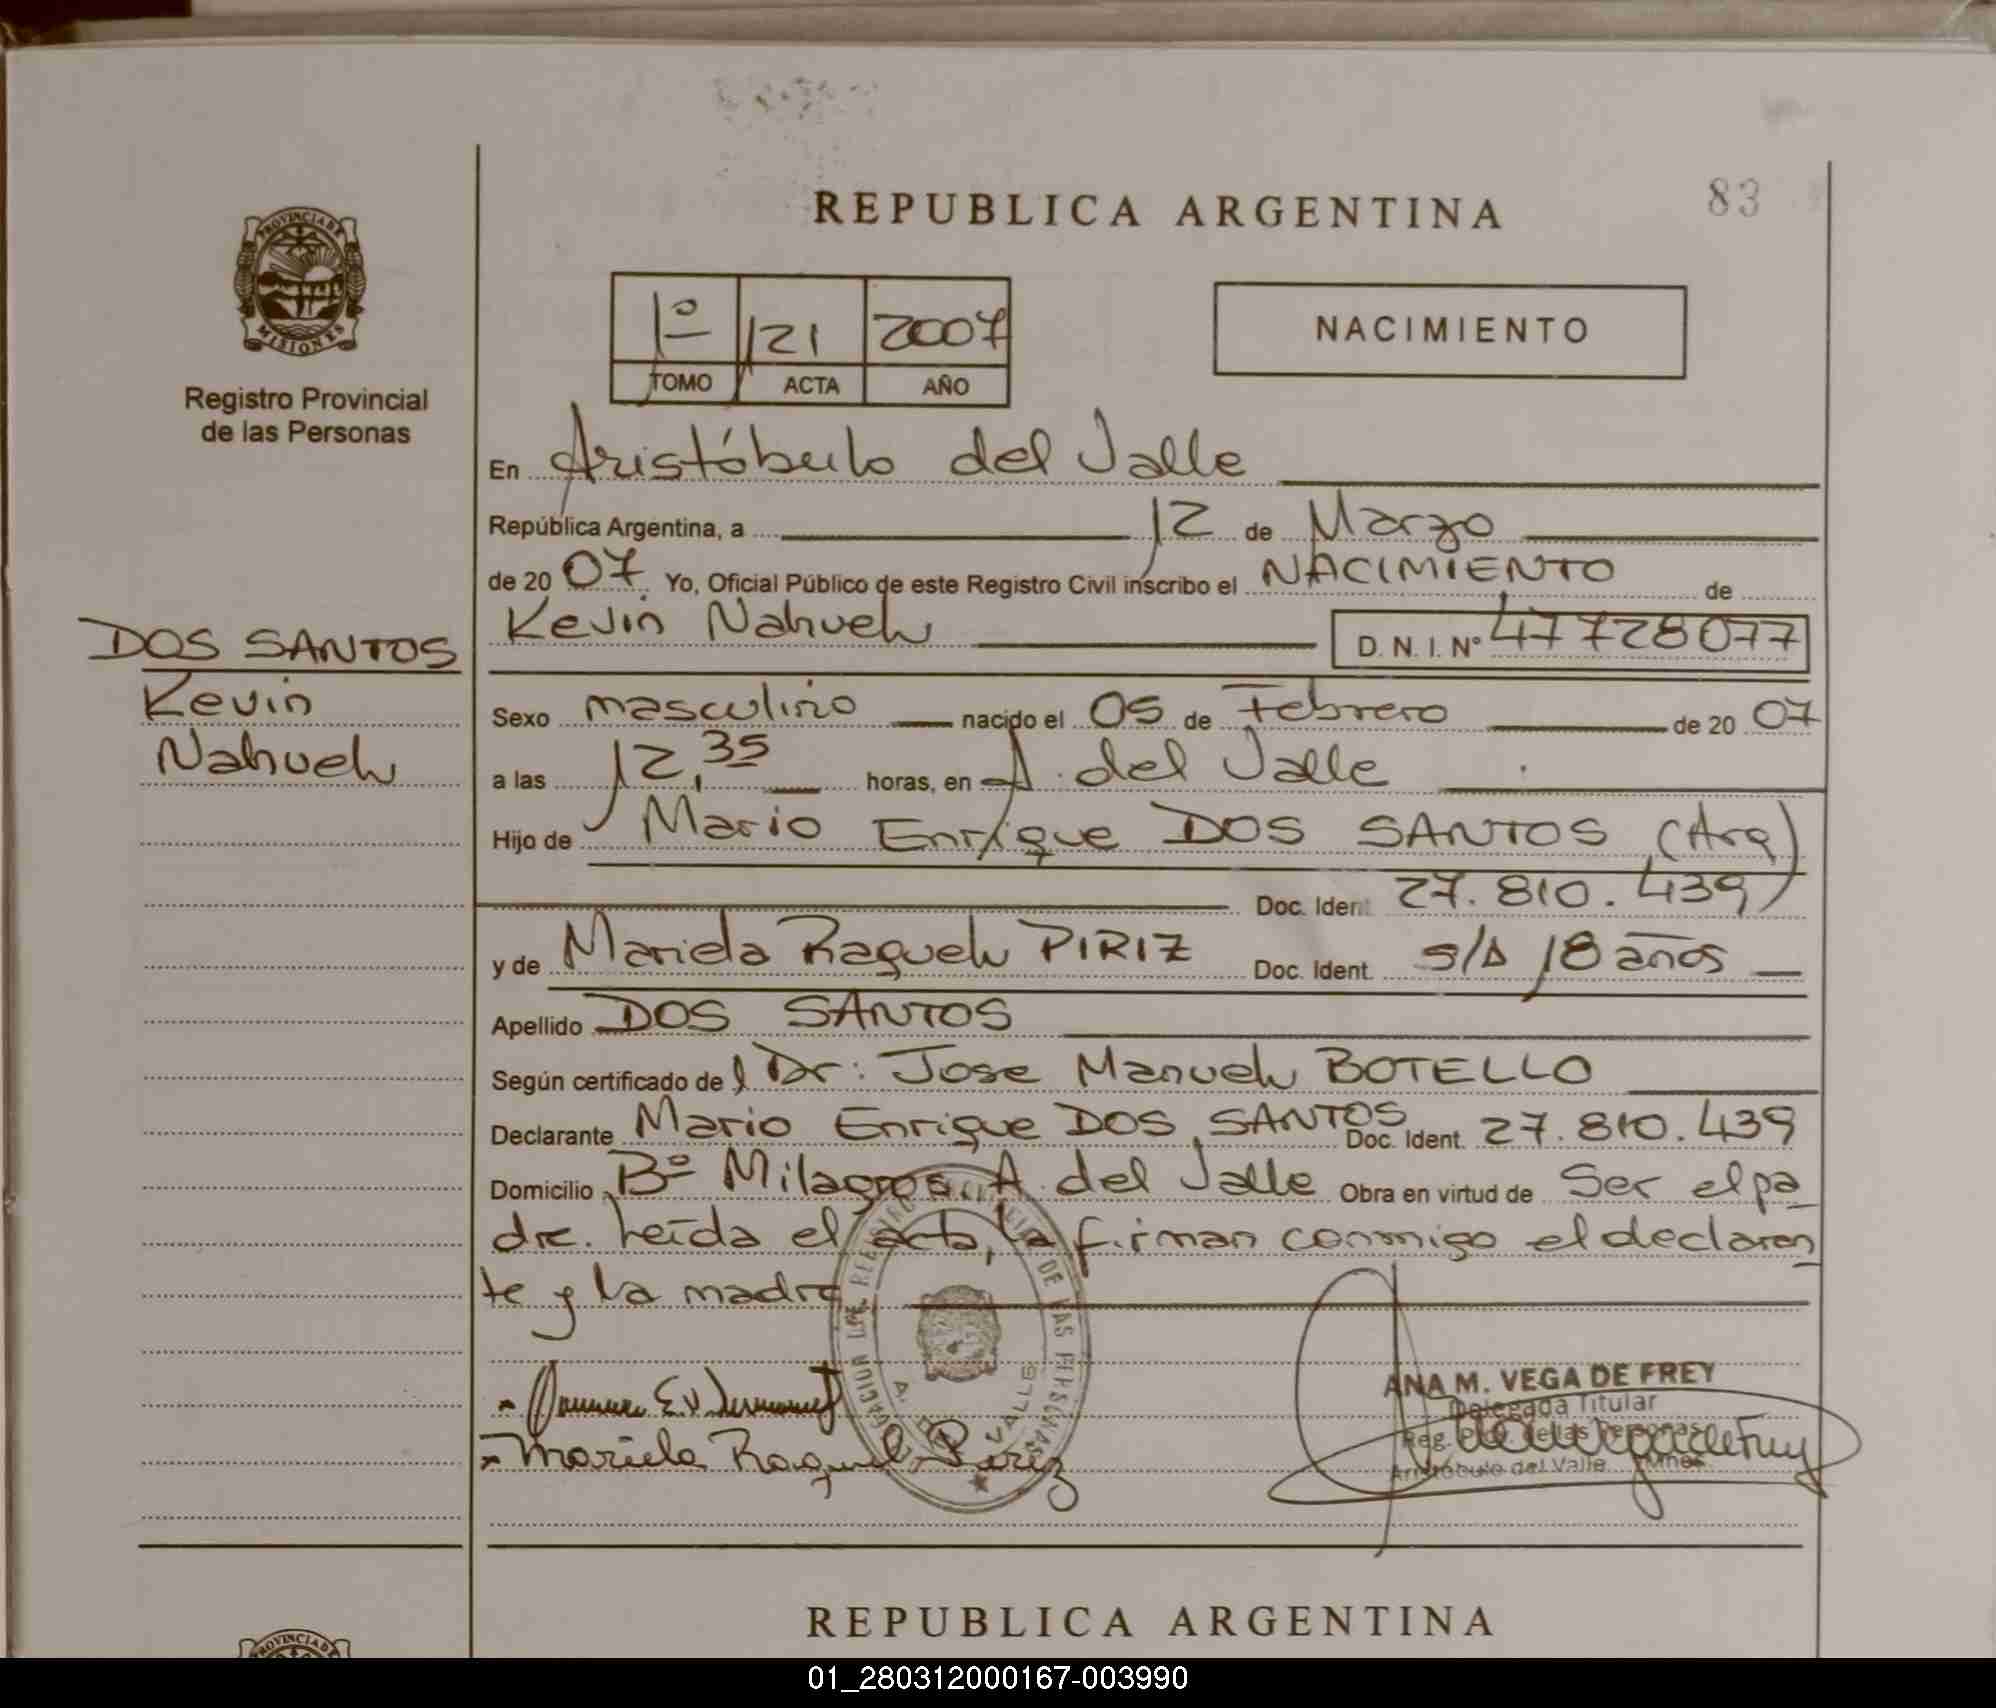 REPUBLICA ARGENTINA
83
PROVINCIA DE
MISIONES
Registro Provincial
de las Personas
1º 121 2007
TOMO ACTA AÑO
NACIMIENTO
En Aristóbulo del Valle
República Argentina, a 12 de Marzo
de 20 07 Yo, Oficial Público de este Registro Civil inscribo el NACIMIENTO de
Kevin Nahuel D. N. I. Nº 47728077
DOS SANTOS
Kevin
Nahuel
Sexo masculino nacido el 05 de Febrero de 20 07
a las 12,35 horas, en A. del Valle
Hijo de Mario Enrique DOS SANTOS (Arg)
Doc. Ident. 27.810.439
y de Mariela Raquel PIRIZ Doc. Ident. s/D 18 años
Apellido DOS SANTOS
Según certificado de l Dr: Jose Manuel BOTELLO
Declarante Mario Enrique DOS SANTOS Doc. Ident. 27.810.439
Domicilio Bº Milagros A. del Valle Obra en virtud de Ser el pa
dre. Leída el acta, la firman conmigo el declaran
te y la madre
Mariela Raquel Piriz
ANA M. VEGA DE FREY
Delegada Titular
Reg. Prov. de las Personas
Aristóbulo del Valle Mnes.
DE LAS PERSONAS
A. DEL VALLE
REPUBLICA ARGENTINA
PROVINCIA DE
01_280312000167-003990